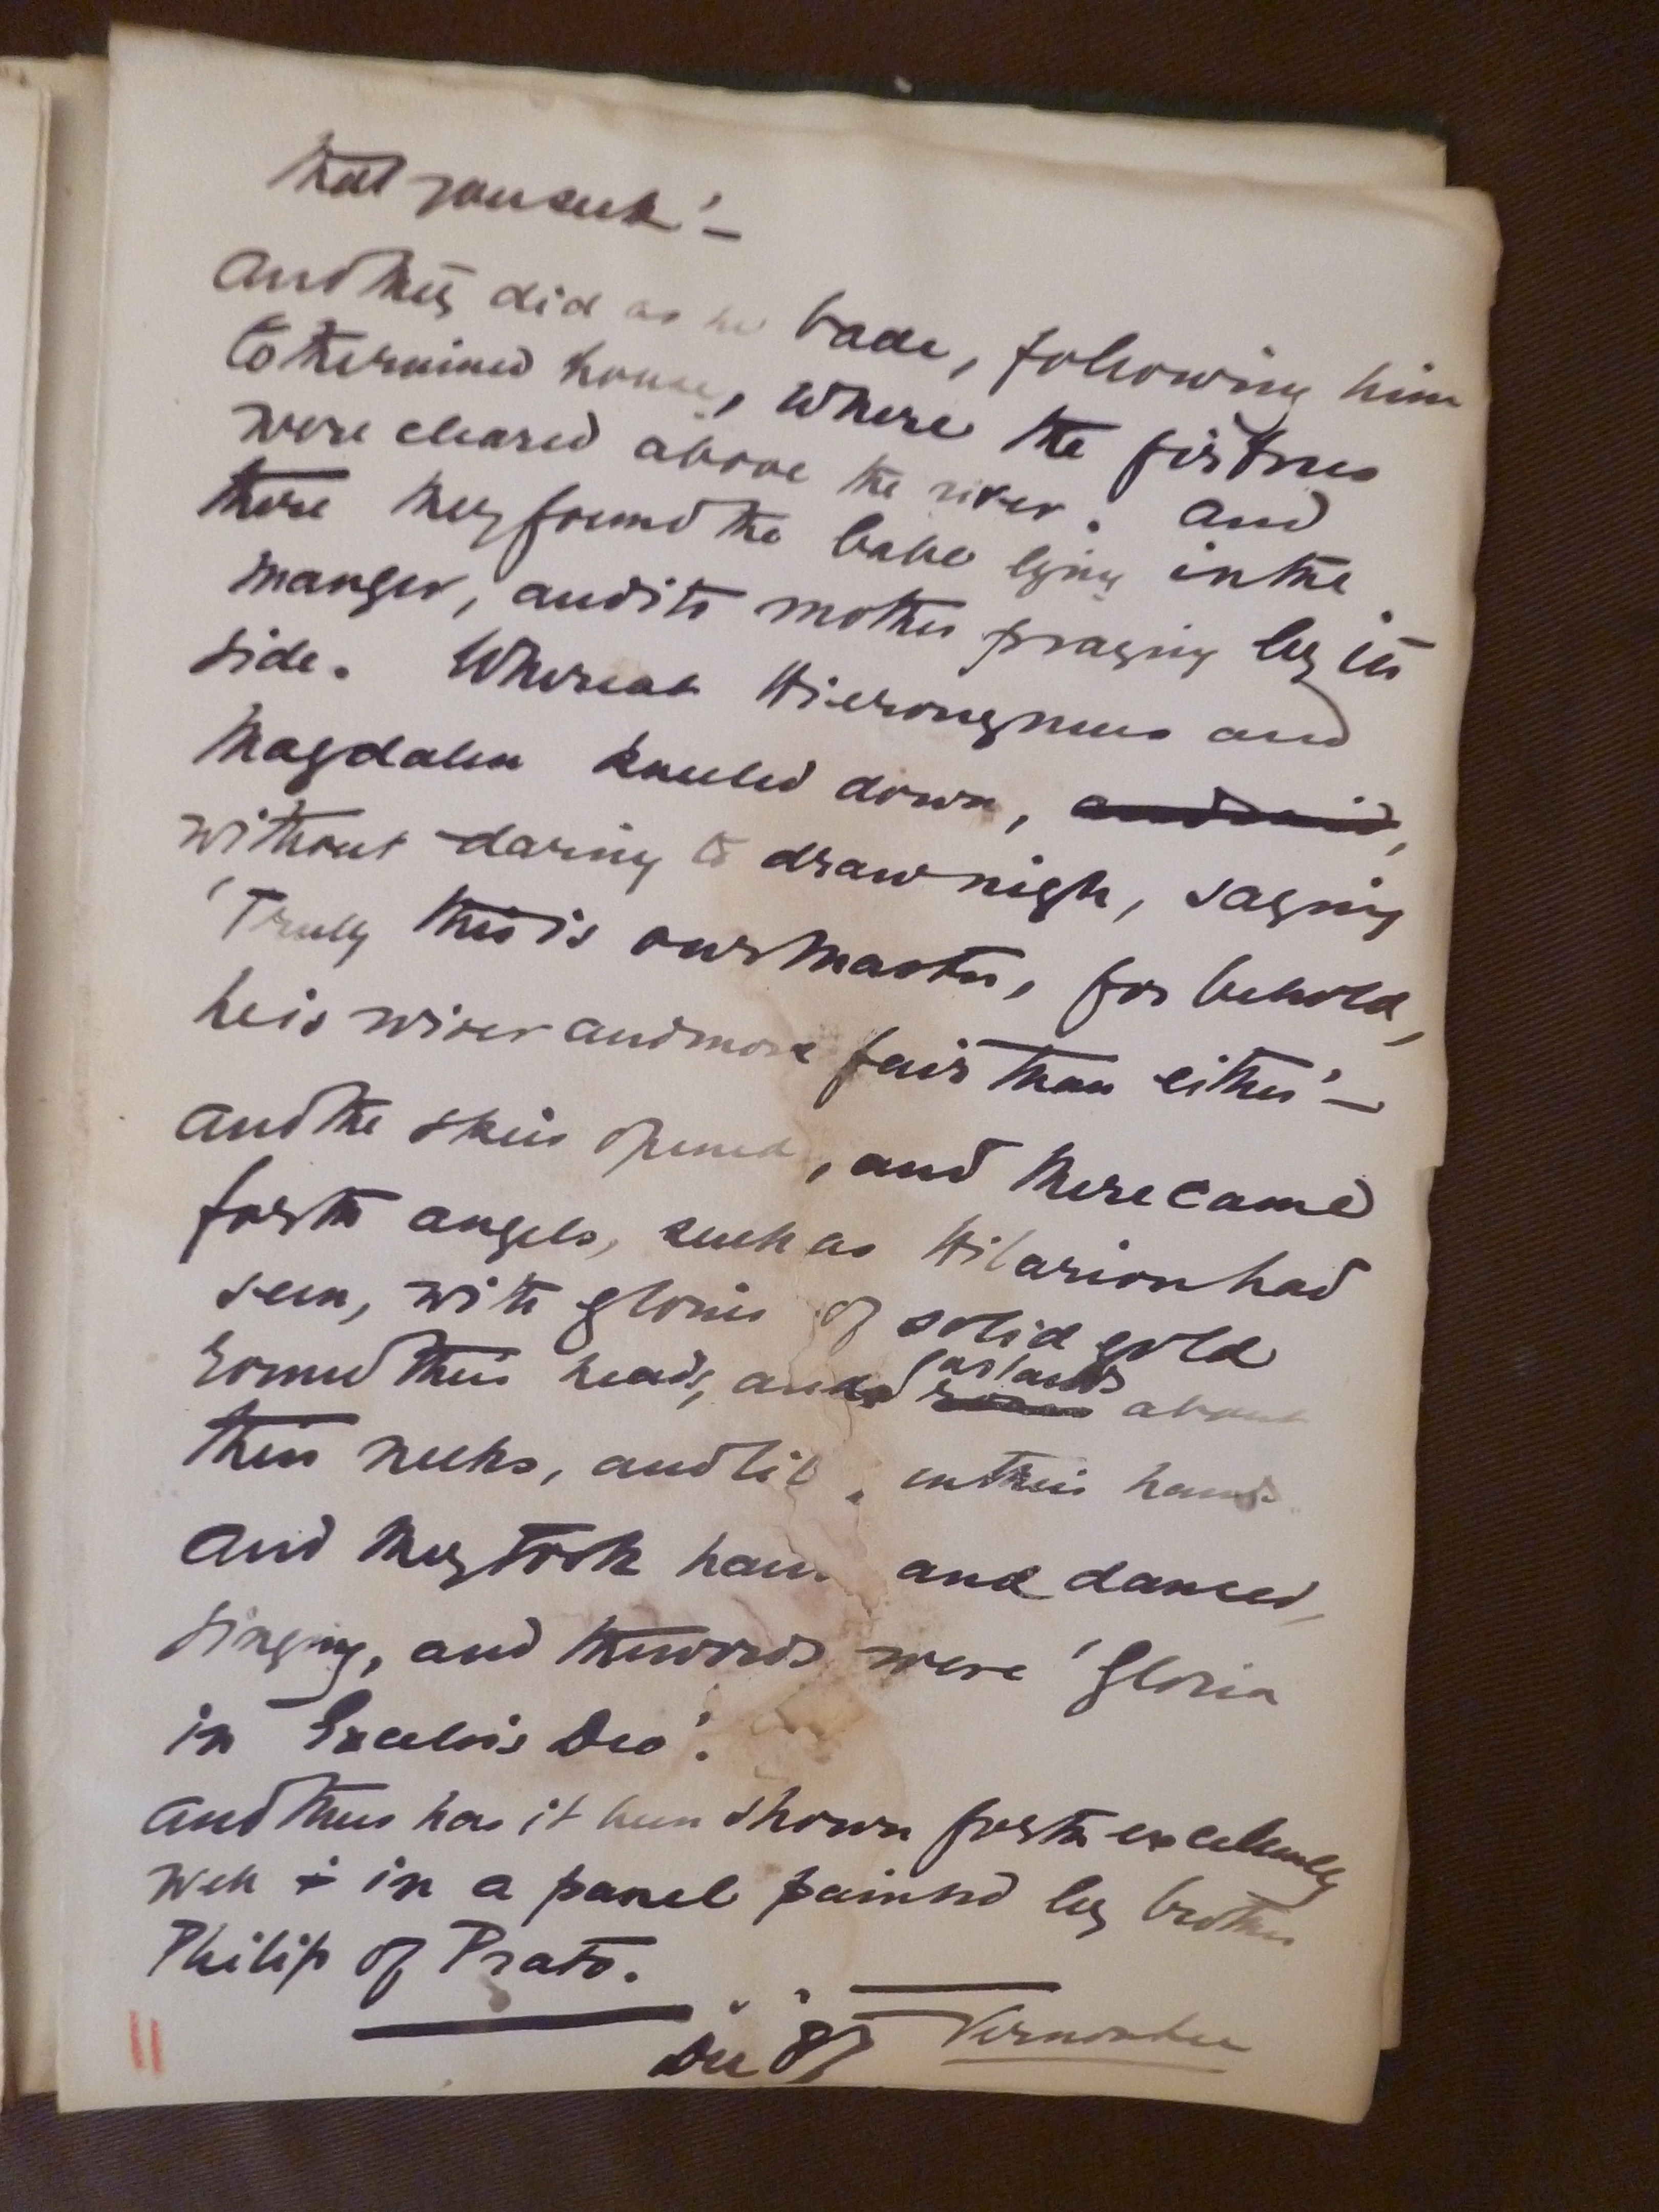 that you seek'—
And they did as he bade, following him
to the ruined house, where the firtrees
were cleared above the river. And
there they found the babe lying in the
manger, and its mother praying by its
side. Whereat Hieronymus and
Magdalen kneeled down, and said,
without daring to draw nigh, saying
'Truly this is our Master, for behold,
he is wiser and more fair than either'—
And the skies opened, and there came
forth angels, such as Hilarion had
seen, with glories of solid gold
round their heads, and garlands about
their necks, and lil in their hands
And they took han and danced,
singing, and the words were 'Gloria
in Excelsis Deo'.
And thus has it been shown forth excellently
well + in a panel painted by brother
Philip of Prato.
Dec 87 Vernon Lee